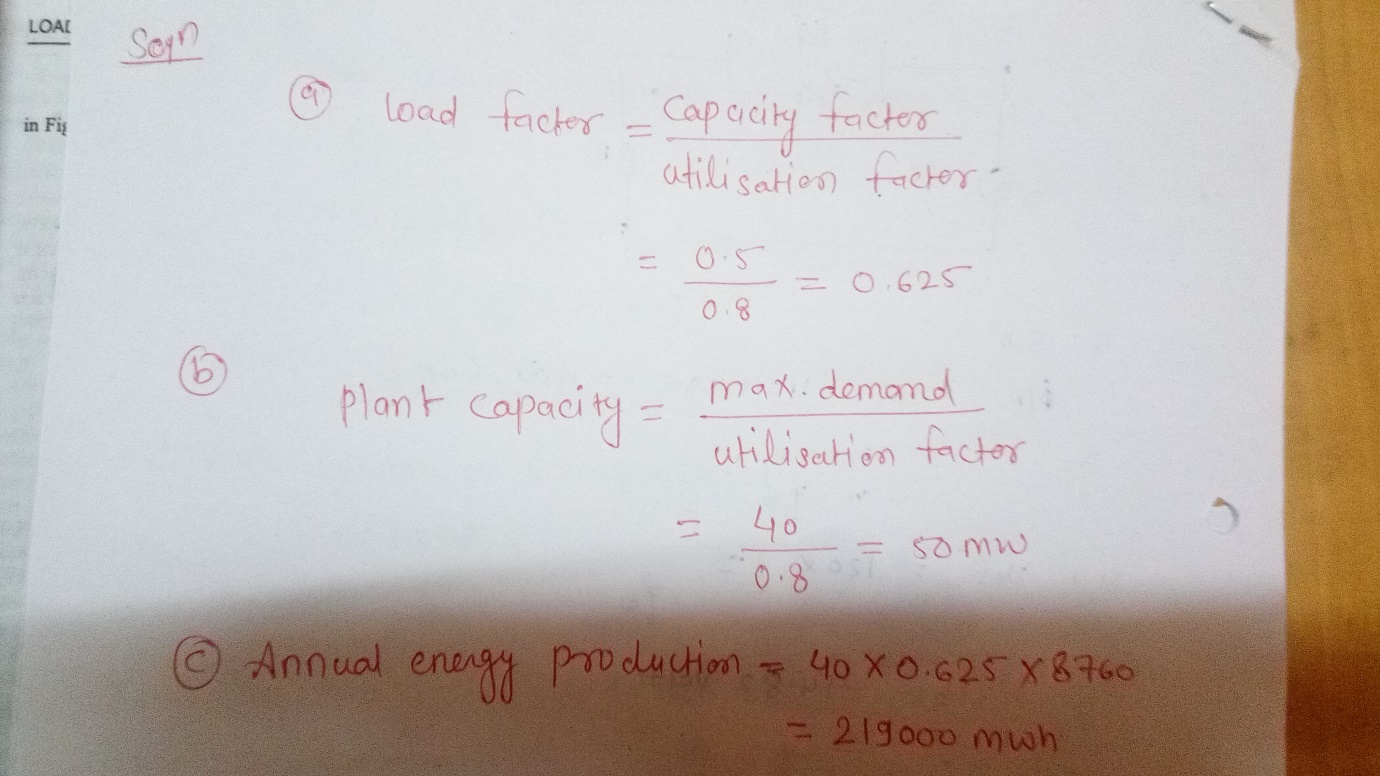 LOAD
Soln
in Fig
(a) load factor = Capacity factor
utilisation factor
= 0.5
0.8
= 0.625
(b)
plant capacity = max. demand
utilisation factor
= 40
0.8
= 50 mw
(c) Annual energy production = 40 X 0.625 X 8760
= 219000 mwh